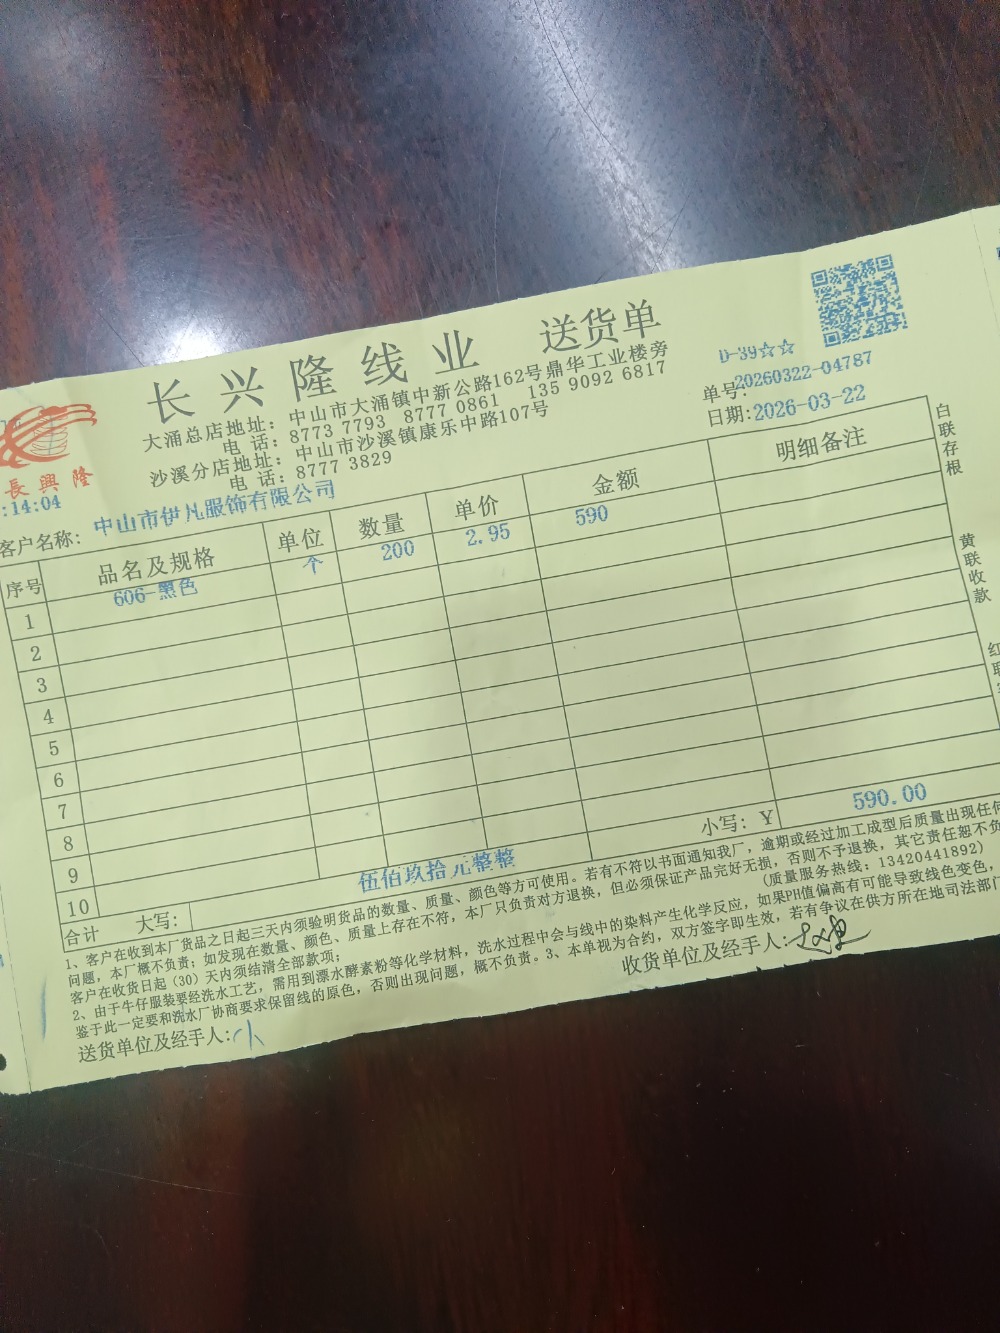 长兴隆线业 送货单
D-39☆☆
大涌总店地址：中山市大涌镇中新公路162号鼎华工业楼旁
单号：20260322-04787
电 话：8773 7793 8777 0861 135 9092 6817
日期：2026-03-22
沙溪分店地址：中山市沙溪镇康乐中路107号
电 话：8777 3829
長興隆
:14:04
客户名称：中山市伊凡服饰有限公司
序号 品名及规格 单位 数量 单价 金额 明细备注
1 606-黑色 个 200 2.95 590
2
3
4
5
6
7
8
9
10
合计 大写： 伍佰玖拾元整整 小写：￥ 590.00
1、客户在收到本厂货品之日起三天内须验明货品的数量、质量、颜色等方可使用。若有不符以书面通知我厂，逾期或经过加工成型后质量出现任何
问题，本厂概不负责；如发现在数量、颜色、质量上存在不符，本厂只负责对方退换，但必须保证产品完好无损，否则不予退换，其它责任恕不负
客户在收货日起（30）天内须结清全部款项； (质量服务热线：13420441892)
2、由于牛仔服装要经洗水工艺，需用到漂水酵素粉等化学材料，洗水过程中会与线中的染料产生化学反应，如果PH值偏高有可能导致线色变色，
鉴于此一定要和洗水厂协商要求保留线的原色，否则出现问题，概不负责。3、本单视为合约，双方签字即生效，若有争议在供方所在地司法部门
送货单位及经手人：小
收货单位及经手人：
白联存根
黄联收款
红联